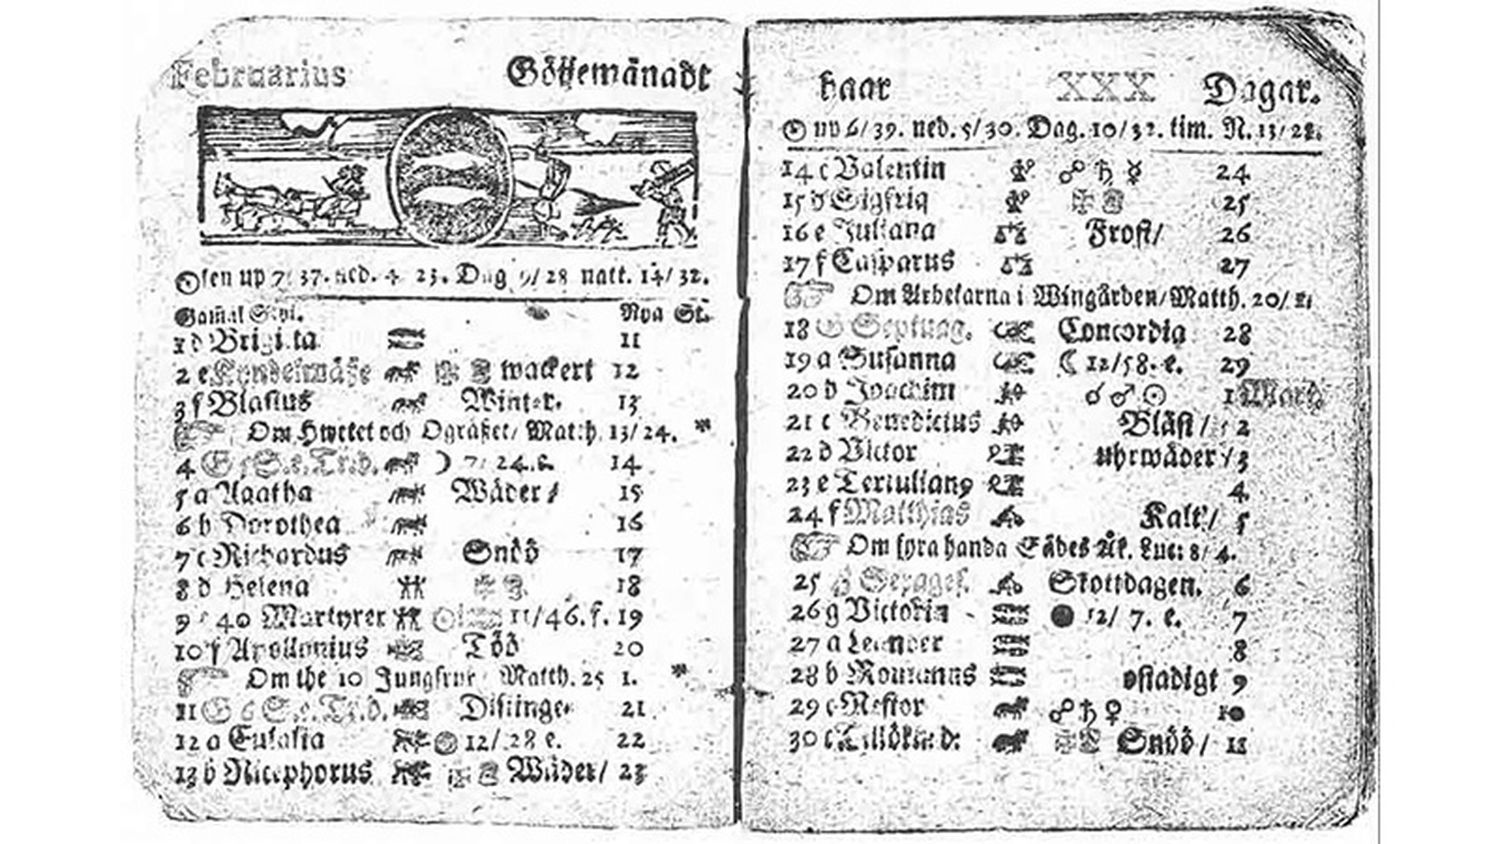 Februarius Göijemånadt
Solen up 7/37. ned. 4 23. Dag 9/28 natt. 14/32.
Gamal Styl. Nya St.
1 d Brigitta 11
2 e Kyndelmässe wackert 12
3 f Blasius Winter. 13
Om Hwetet och Ogräset/ Matth. 13/24.
4 G 5 S. e. Tr.d. ☽ 7/24. 14
5 a Agatha Wäder/ 15
6 b Dorothea 16
7 c Richardus Snöö 17
8 d Helena 18
9 e 40 Martyrer 11/46. f. 19
10 f Apollonius Töö 20
Om the 10 Jungfrur Matth. 25 1.
11 G 6 S. e. Tr.d. Distinge 21
12 a Eulalia 12/28 e. 22
13 b Nicephorus Wäder/ 23
haar XXX Dagar.
☉ up 6/39. ned. 5/30. Dag. 10/32. tim. N. 13/28.
14 c Valentin ☍ ♄ ☿ 24
15 d Sigfrid 25
16 e Juliana Frost/ 26
17 f Casparus 27
Om Arbetarna i Wingården/ Matth. 20/1.
18 G Septuag. Concordia 28
19 a Susanna ☾ 12/58. e. 29
20 b Joachim ☌ ♂ ☉ 1 Mart.
21 c Benedictus Blåst/ 2
22 d Victor uhrwäder/ 3
23 e Tertulian9 4
24 f Matthias Kalt/ 5
Om fyra handa Sädes Åk. Luc: 8/4.
25 G Sexages. Skottdagen. 6
26 g Victoria ● 12/7. e. 7
27 a Leander 8
28 b Romanus ostadigt 9
29 c Nestor ☍ ♄ ♀ 10
30 Tillökn.d: Snöö/ 11